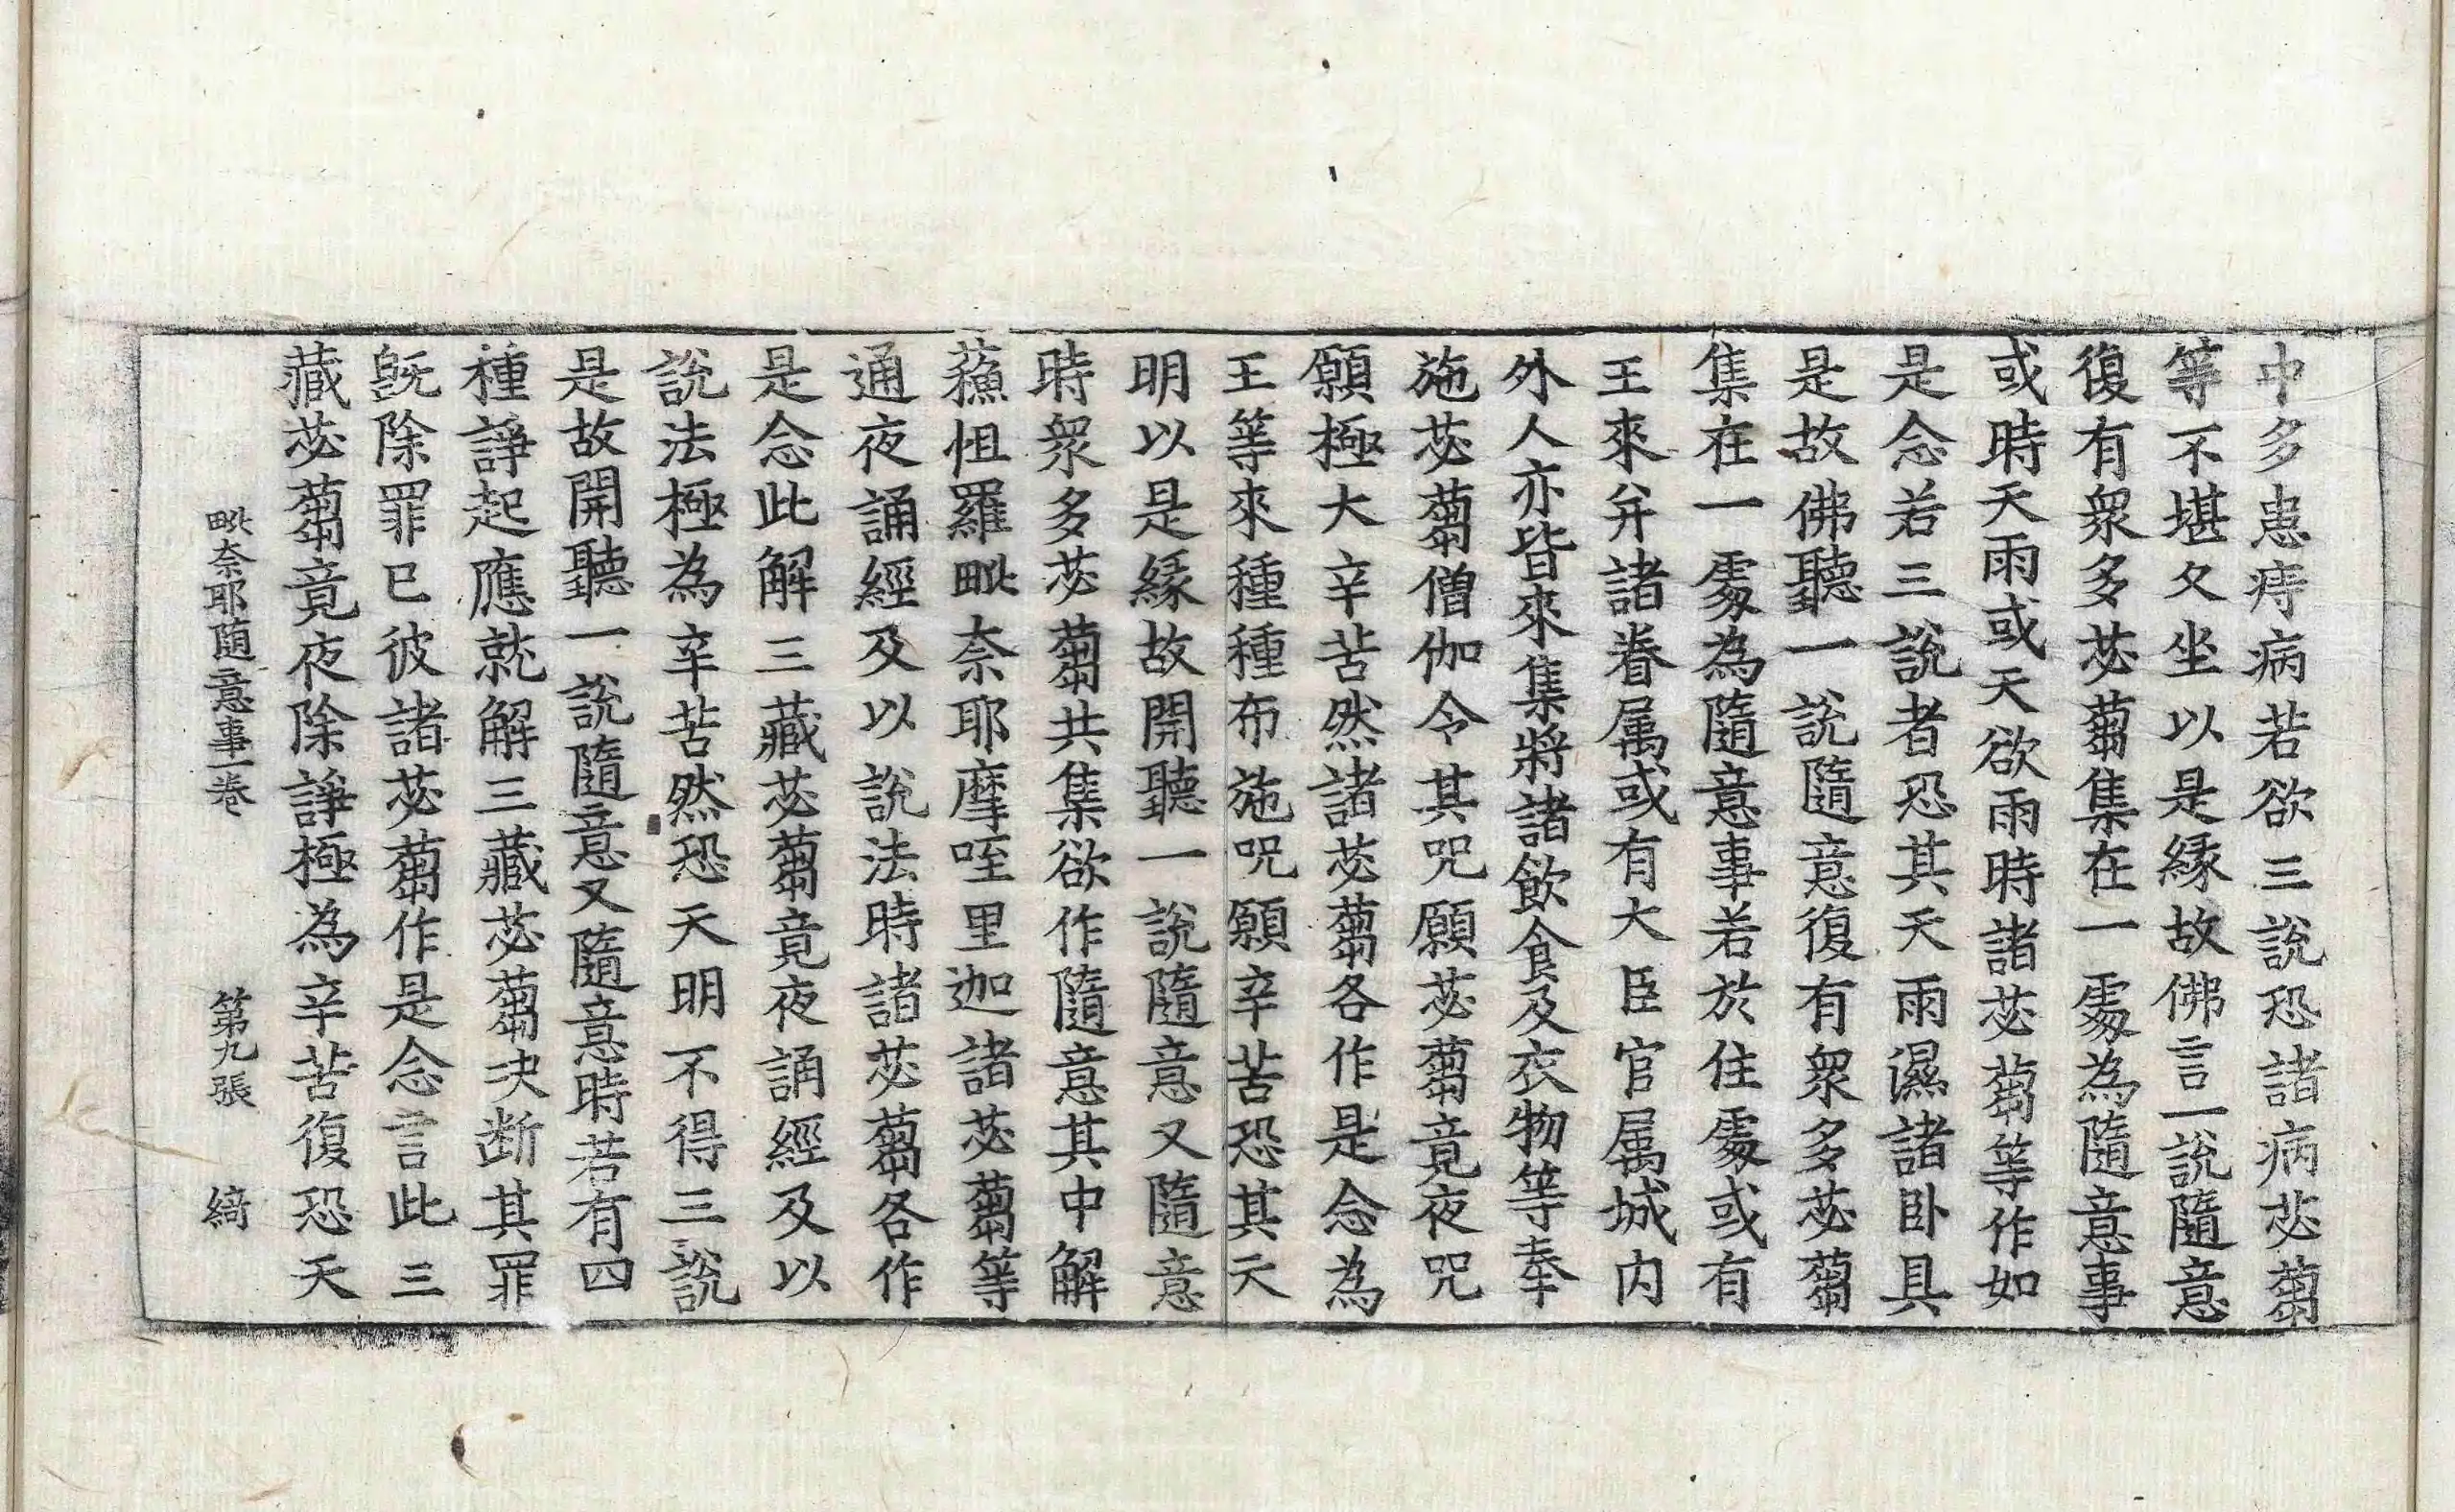 中多患痔病若欲三說恐諸病苾蒭
等不堪久坐以是緣故佛言一說隨意
復有衆多苾蒭集在一處為隨意事
或時天雨或天欲雨時諸苾蒭等作如
是念若三說者恐其天雨濕諸卧具
是故佛聽一說隨意復有衆多苾蒭
集在一處為隨意事若於住處或有
王來并諸眷属或有大臣官属城内
外人亦皆來集將諸飲食及衣物等奉
施苾蒭僧伽令其呪願苾蒭竟夜呪
願極大辛苦然諸苾蒭各作是念為
王等來種種布施呪願辛苦恐其天
明以是緣故開聽一說隨意又隨意
時衆多苾蒭共集欲作隨意其中解
蘓怛羅毗奈耶摩咥里迦諸苾蒭等
通夜誦經及以說法時諸苾蒭各作
是念此解三藏苾蒭竟夜誦經及以
說法極為辛苦然恐天明不得三說
是故開聽一說隨意又隨意時若有四
種諍起應就解三藏苾蒭决断其罪
旣除罪已彼諸苾蒭作是念言此三
藏苾蒭竟夜除諍極為辛苦復恐天
毗奈耶随意事一卷 第九張 綺